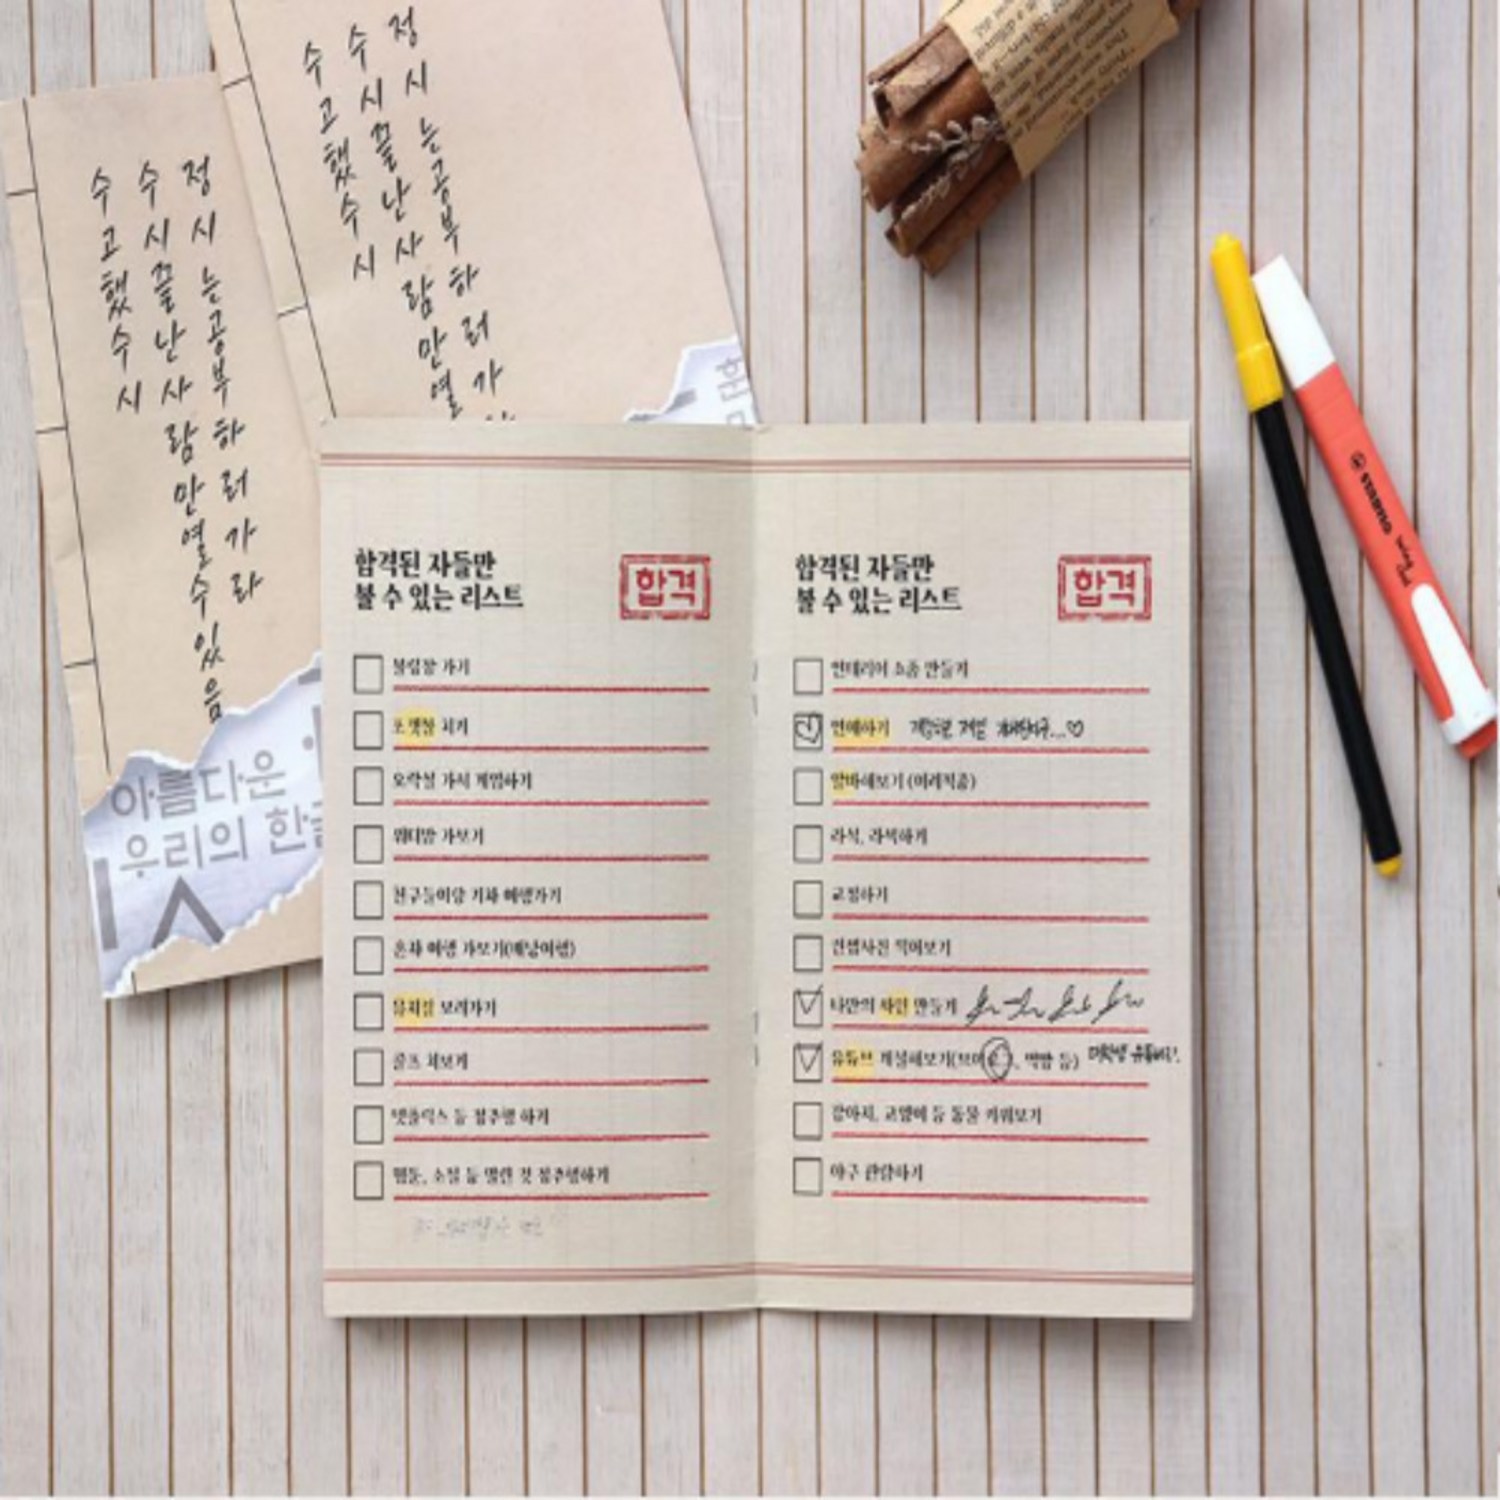 수고했수시
수시끝난사람만열수있음
정시는공부하러가라
수고했수시
수시끝난사람만열
정시는공부하러가
아름다운
우리의 한글
합격된 자들만
볼 수 있는 리스트
합격
볼링장 가기
포켓볼 치기
오락실 가서 게임하기
파티룸 가보기
친구들이랑 기차 여행가기
혼자 여행 가보기(배낭여행)
뮤지컬 보러가기
골프 쳐보기
넷플릭스 등 정주행 하기
웹툰, 소설 등 밀린 것 정주행하기
합격된 자들만
볼 수 있는 리스트
합격
인테리어 소품 만들기
연애하기
알바해보기 (여러직종)
라식, 라섹하기
교정하기
컨셉사진 찍어보기
나만의 싸인 만들기
유튜브 개설해보기(브이로그, 먹방 등) 대학생 유튜버!
강아지, 고양이 등 동물 키워보기
야구 관람하기
STABILO